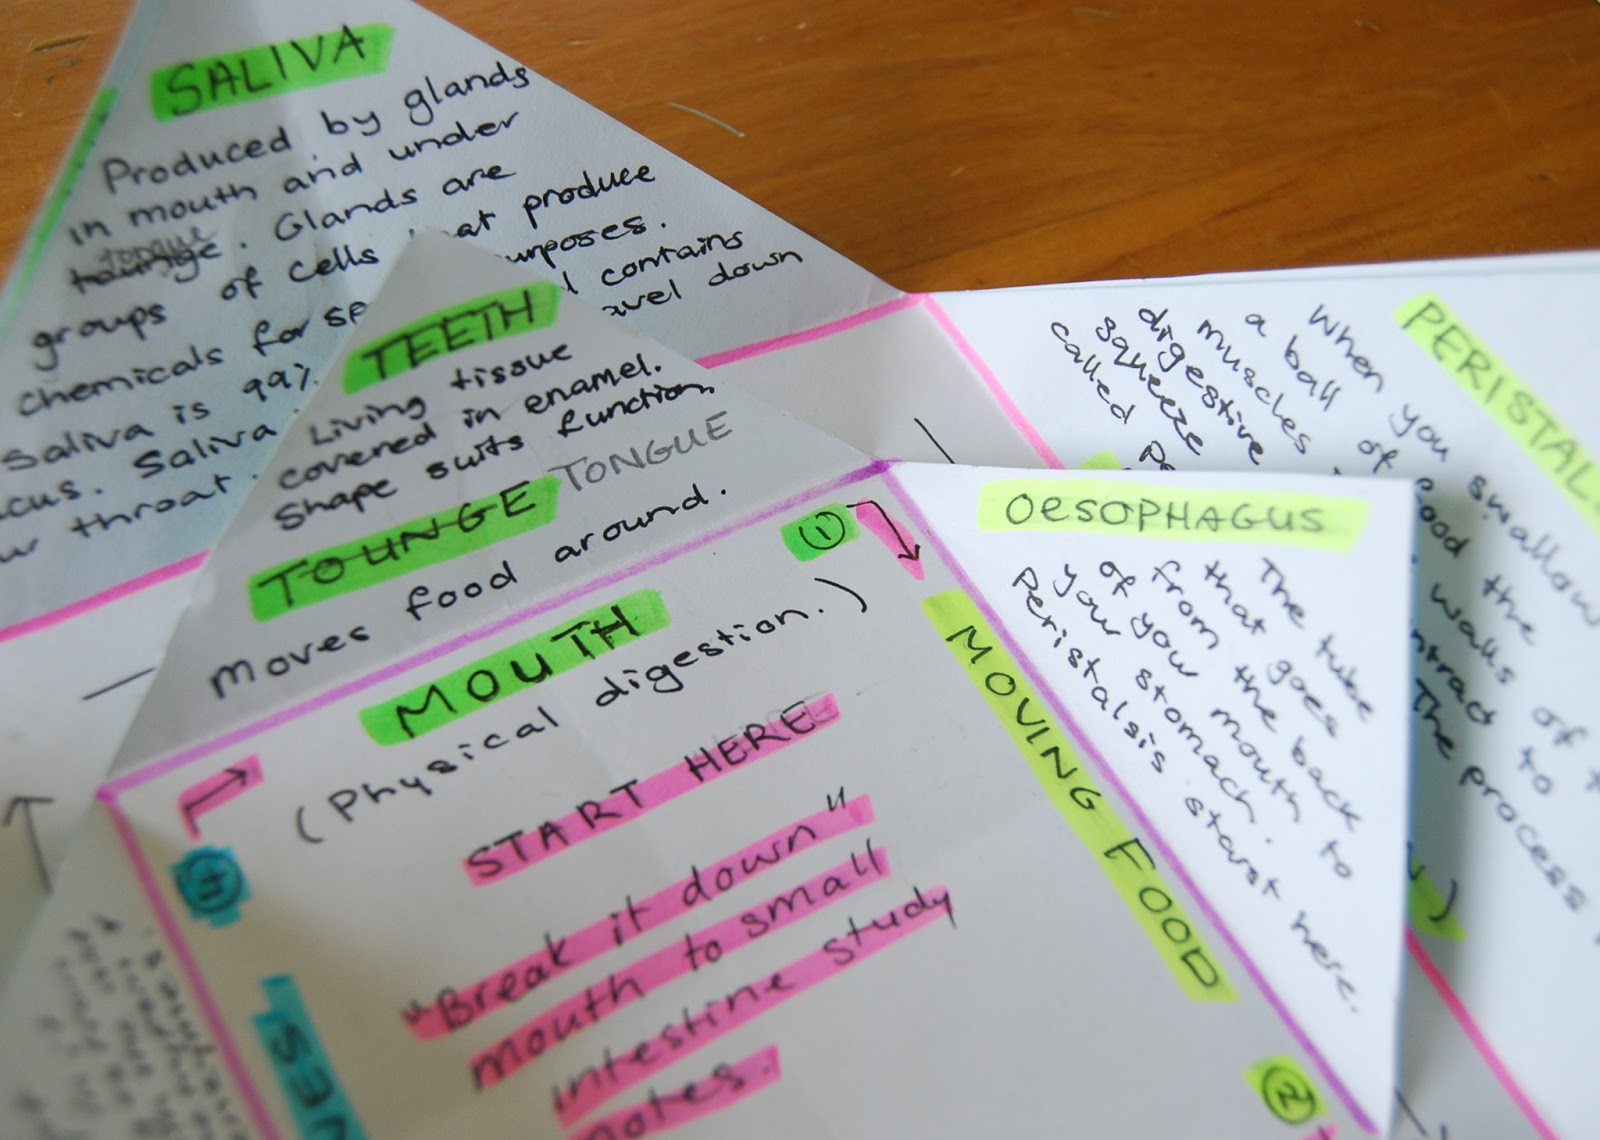 SALIVA
Produced by glands
in mouth and under
tounge tongue. Glands are
groups of cells at produce
chemicals for sp urposes.
Saliva is 99% contains
cus. Saliva avel down
throat.
TEETH
Living tissue
covered in enamel.
Shape suits function.
TOUNGE TONGUE
moves food around.
MOUTH
(Physical digestion.)
①
START HERE
"Break it down"
mouth to small
intestine study
notes.
MOVING FOOD
②
OESOPHAGUS
The tube
that goes
from the back
of your mouth to
your stomach.
Peristalsis start here.
PERISTAL
When you swallow
a ball of food the
muscles walls of
digestive ntract to
squeeze The process
called
④